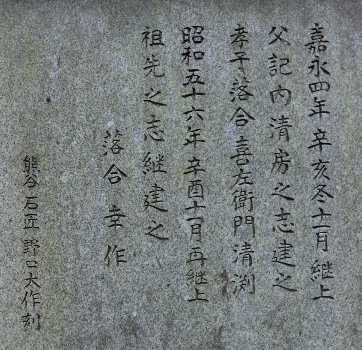 嘉永四年辛亥冬十一月継上
父記内清房之志建之
孝子落合喜左衛門清渕
昭和五十六年辛酉十一月再継上
祖先之志継建之
落合幸作
熊谷石匠野口大作刻